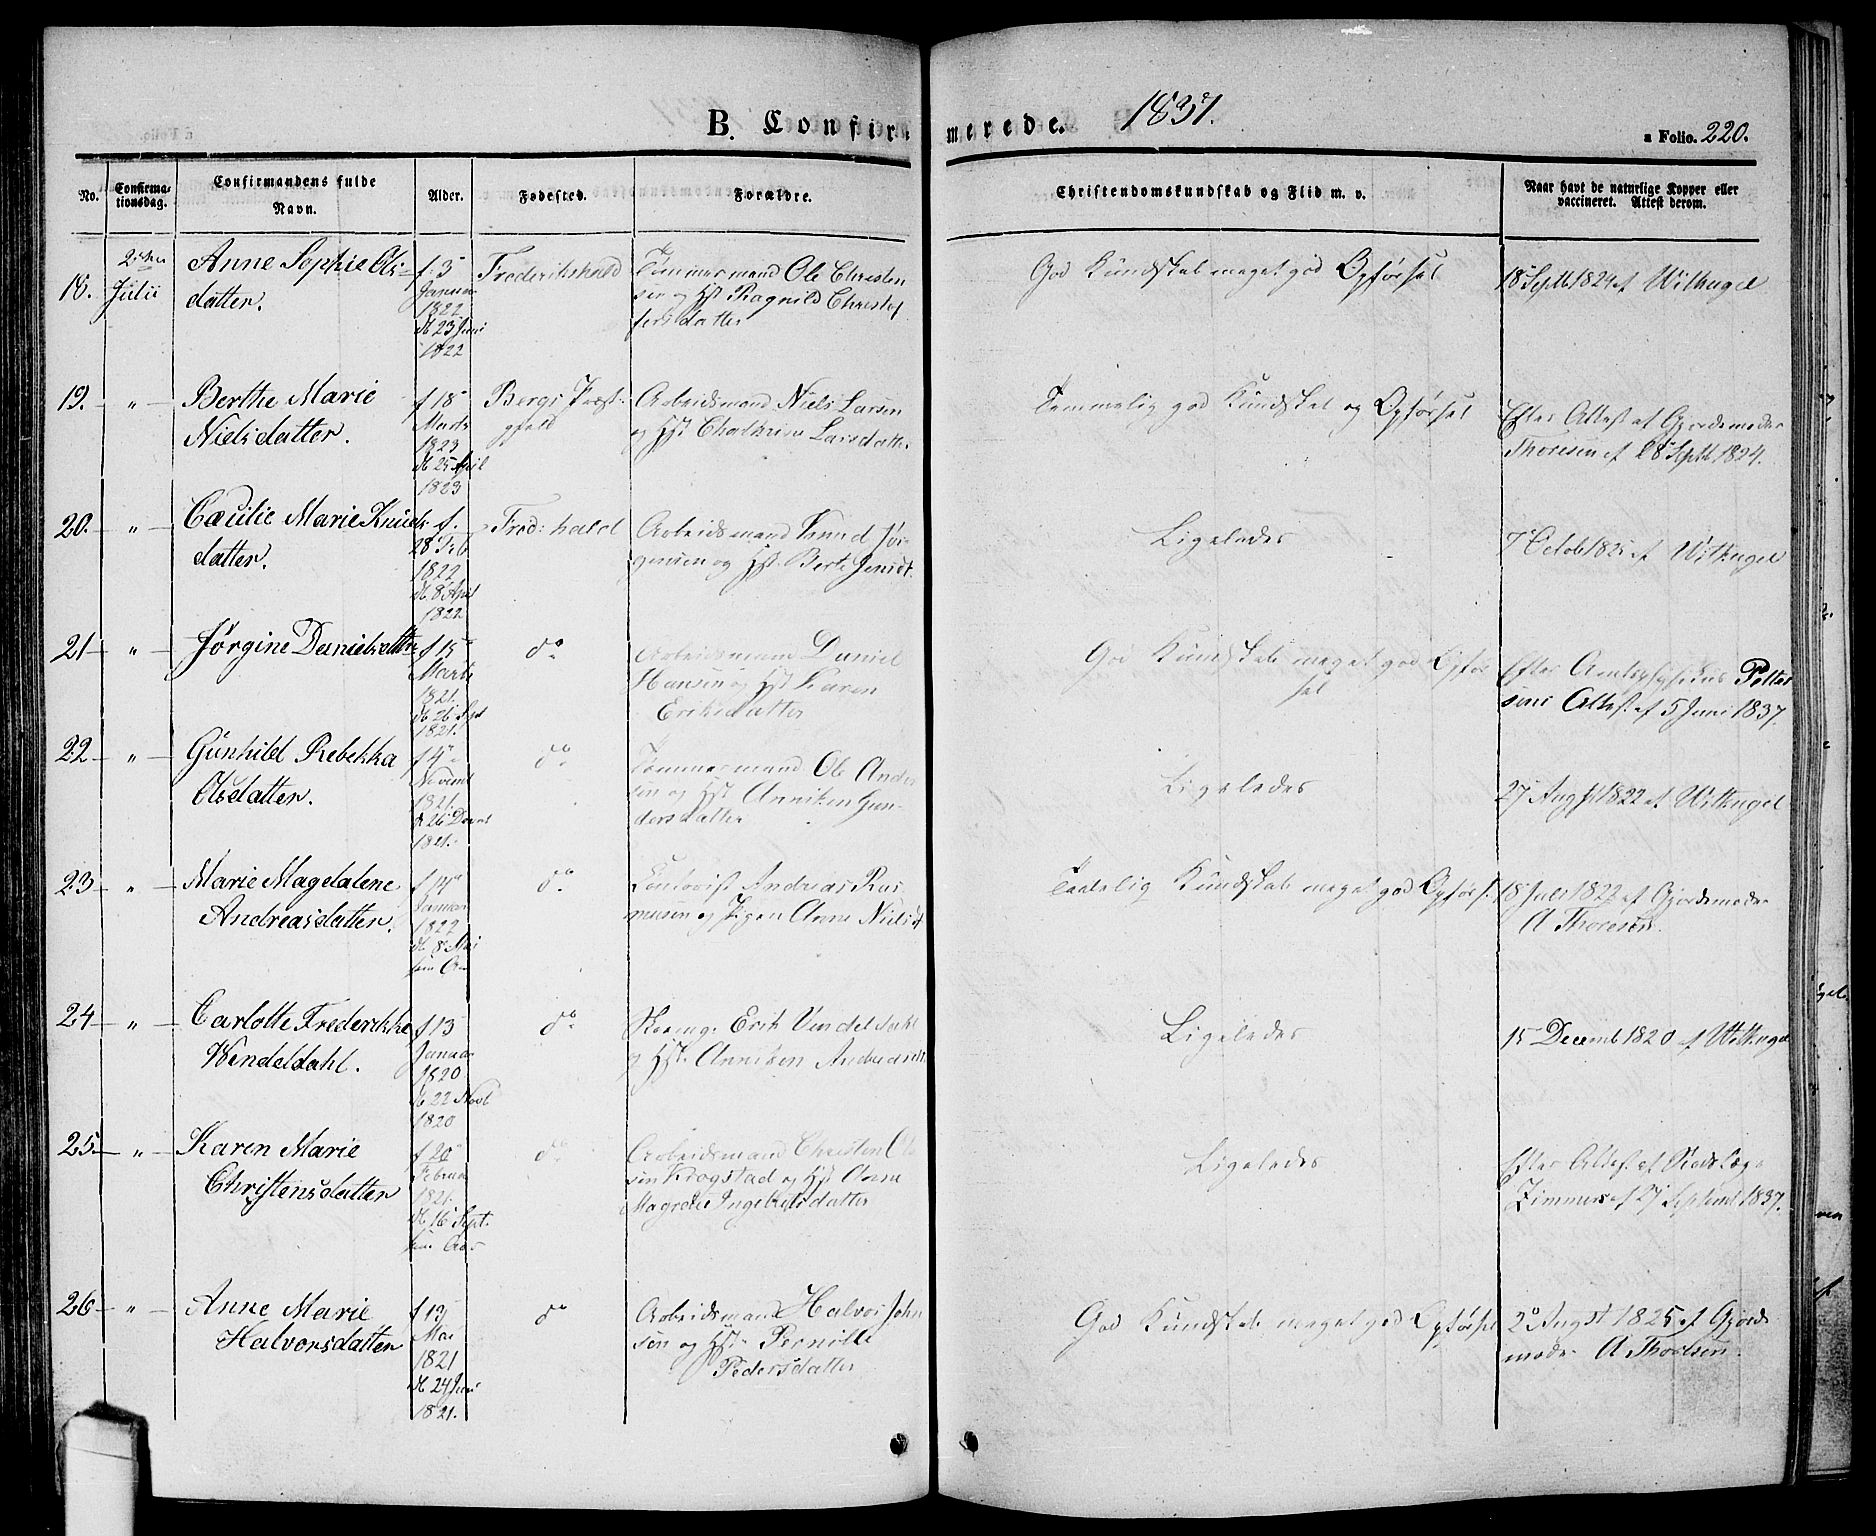 B. Confir-
merede. 1837.
a Folio. 220.
No.
Confirma-
tionsdag.
Confirmandens fulde
Navn.
Alder.
Fødested.
Forældre.
Christendomskundskab og Flid m. v.
Naar havt de naturlige Kopper eller
vaccineret. Attest derom.
18.
Julii
Anne Sophie Ols-
datter.
f. 5
Januar
1822
db 23 Juni
1822
Frederikshald
Tømmermand Ole Christen
sen og Hst Ragnild Christof
fersdatter
God Kundskab meget god Opførsel
18 Septb 1824 af Witkugel
19. "
Berthe Marie
Nielsdatter.
f 18
Marts
1823
db 25 April
1823
Bergs Præst
gjeld
Arbeidsmand Niels Larsen
og Hst Cathrine Larsdatter
Temmelig god Kundskab og Opførsel
Efter Attest af Gjordemoder
Thoresen af 28 Septb 1824.
20. "
Cæcilie Marie Knuds
datter.
f.
28 Feb
1822
db 8 April
1822
Fred: hald
Arbeidsmand Knud Jør-
gensen og Hst. Berte Jensdt.
Ligeledes
7 Octob 182 af Witkugel
21 "
Jørgine Danielsdatter
f 15
Marts
1821.
db 26 Sept
1821.
do
Arbeidsmand Daniel
Hansen og Hst Karen
Eriksdatter
God Kundskab meget god Opfør
sel
Efter Amtsphysicus Petter
sens Attest af 5 Juni 1837.
22 "
Gunhild Rebekka
Olsdatter.
f 4
Novemb
1821.
d 26 Decemb
1821.
do
Tømmermand Ole Ander
sen og Hst Anniken Gun-
dersdatter
Ligeledes
27 Augst 1822 af Witkugel
23 "
Marie Magdalene
Andreasdatter.
f 14
Januar
1822
db 8 Mai
do
Andreas Ras
musen og Pigen Anne Nielsdt
Kundskab meget god Opførs.
18 Juli 1822 af Gjordemoder
A Thoresen.
24 "
Carlotte Frederikke
Wendeldahl.
f 13
Januar
1820
db 22 Novb
1820
do
Erik Vendeldahl
og Hst. Anniken Andreasdt.
Ligeledes
15 Decemb 1820 af Witkugel
25. "
Karen Marie
Christensdatter
f 20
Februar
1821.
db 16 Sept.
do
Arbeidsmand Christen Ol
sen Krogstad og Hst Anne
Magrete Ingebretsdatter
Ligeledes
Efter Attest af Stadslæge
Zimmer af 27 Septemb 1837.
26 "
Anne Marie
Halvorsdatter
f 19
Mai
1821
db 24 Juni
1821.
do
Arbeidsmand Halvor John
sen og Hst Pernille
Pedersdatter
God Kundskab meget god Opførsel
20 Augst 1825 af Gjorde
moder A Thoresen.